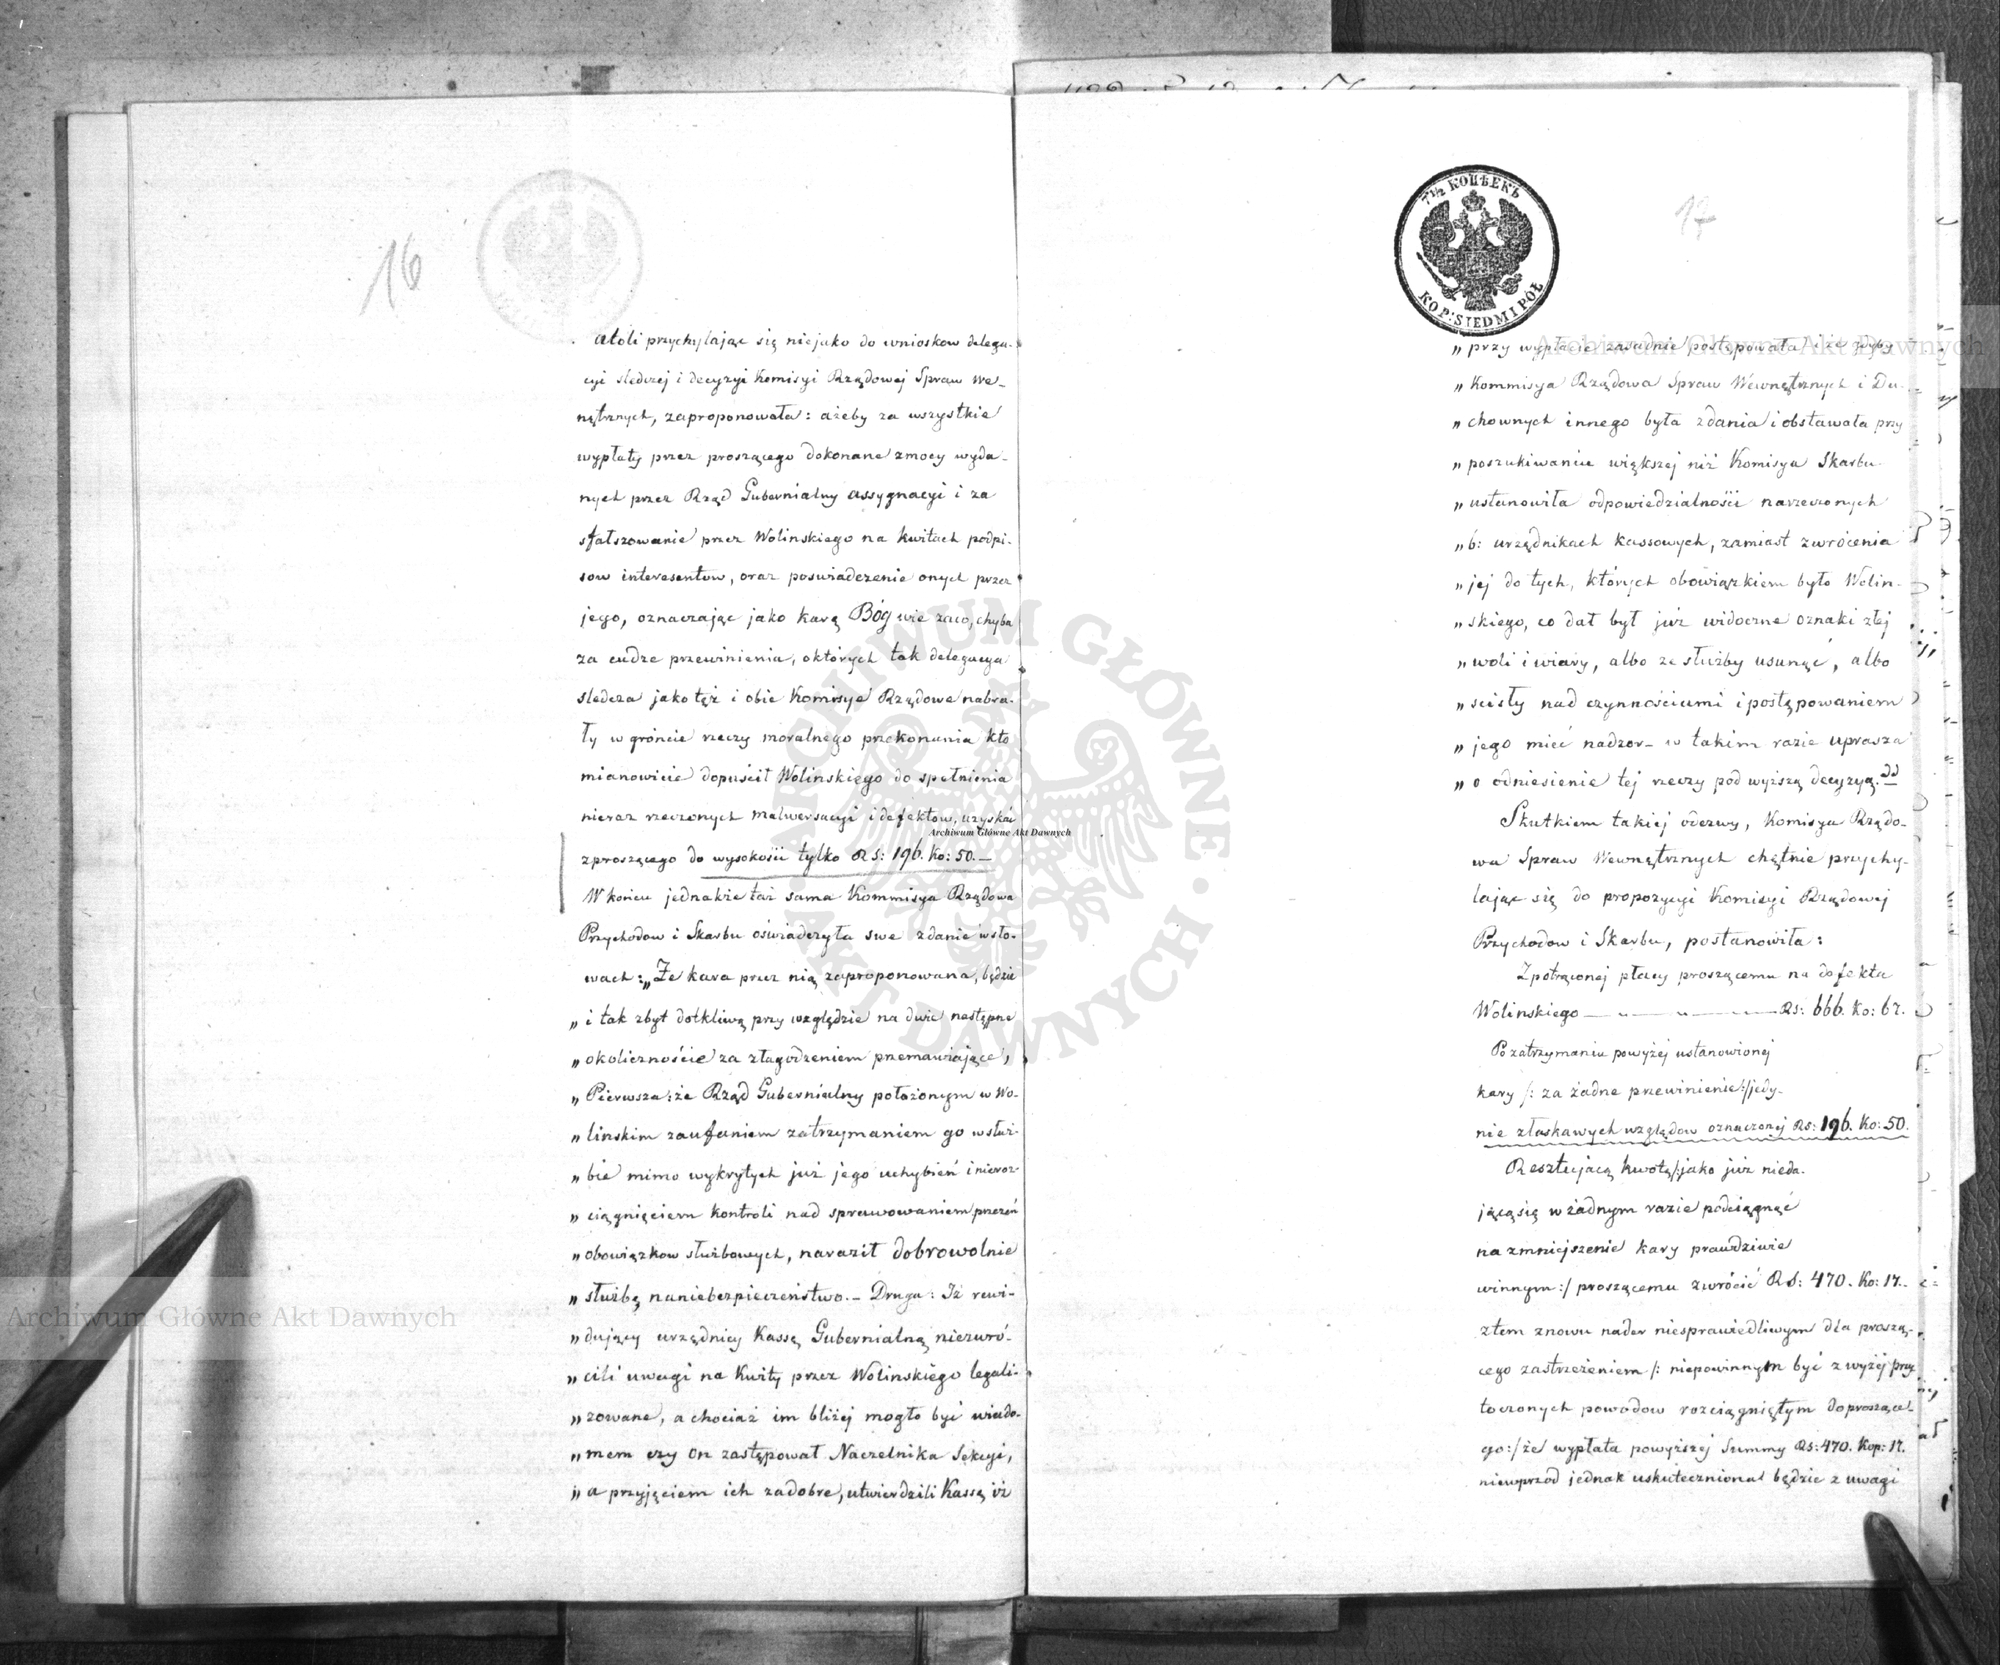 16
atoli przychylając się niejako do wniosków delega-
cyi śledczej i decyzyi Komisyi Rządowej Spraw We-
nętrznych, zaproponowała: ażeby za wszystkie
wypłaty przez proszącego dokonane z mocy wyda-
nych przez Rząd Gubernialny assygnacyi i za
sfałszowanie przez Wolinskiego na kwitach podpi-
sow interesentow, oraz poswiadczenie onych przez
jego, oznaczając jako karę Bóg wie zaco, chyba
za cudze przewinienia, o których tak delegacya
sledcza jako też i obie Komisye Rządowe nabra-
ły w gróncie rzeczy moralnego przekonania kto
mianowicie dopuścił Wolinskiego do spełnienia
nieraz rzeczonych malwersacyi i defektow, uzyskać
zproszącego do wysokości tylko RS: 196. Ko: 50.—
W końcu jednakże taż sama Kommisya Rządowa
Przychodow i Skarbu oświadczyła swe zdanie w sło-
wach: „Że kara przez nią zaproponowana, będzie
„ i tak zbyt dotkliwą przy względzie na dwie następne
„ okoliczności za złagodzeniem przemawiające,
„ Pierwsza: że Rząd Gubernialny położonym w Wo-
„ linskim zaufaniem zatrzymaniem go w służ-
„ bie mimo wykrytych już jego uchybień i nieroz-
„ ciągnięciem kontroli nad sprawowaniem przezeń
„ obowiązkow służbowych, naraził dobrowolnie
„ służbę na niebezpieczeństwo.— Druga: Iż rewi-
„ dujący urzędnicy Kassę Gubernialną niezwró-
„ cili uwagi na Kwity przez Wolinskiego legali-
„ zowane, a chociaż im bliżej mogło być wiado-
„ mem czy on zastępował Naczelnika Sekcyi,
„ a przyjęciem ich za dobre, utwierdzili Kassę iż
7½ КОПѢЕКЪ
KOP: SIEDMI PÓŁ
17
„ przy wypłacie zasadnie postępowała i że gdyby
„ Kommisya Rządowa Spraw Wewnętrznych i Du-
„ chownych innego była zdania i obstawała przy
„ poszukiwaniu większej niż Komisya Skarbu
„ ustanowiła odpowiedzialności na rzeczonych
„ b: urzędnikach kassowych, zamiast zwrócenia
„ jej do tych, których obowiązkiem było Wolin-
„ skiego, co dał był już widoczne oznaki złej
„ woli i wiary, albo ze służby usunąć, albo
„ scisły nad czynnościami i postępowaniem
„ jego mieć nadzor – w takim razie uprasza
„ o odniesienie tej rzeczy pod wyższą decyzyą."
Skutkiem takiej odezwy, Komisya Rządo-
wa Spraw Wewnętrznych chętnie przychy-
lając się do propozycyi Komisyi Rządowej
Przychodow i Skarbu, postanowiła:
Z potrąconej płacy proszącemu na defekta
Wolinskiego — „ — „ — RS: 666. Ko: 67.
Po zatrzymaniu powyżej ustanowionej
kary /: za żadne przewinienie:/ jedy-
nie złaskawych względow oznaczonej RS: 196. Ko: 50.
Resztującą kwotę /: jako już nieda-
jącą się w żadnym razie podciągnąć
na zmniejszenie kary prawdziwie
winnym:/ proszącemu zwrócić RS: 470. Ko: 17.
ztem znowu nader niesprawiedliwym dla proszą-
cego zastrzeżeniem /: niepowinnym być z wyżej przy-
toczonych powodow rozciągniętym do proszące-
go:/ że wypłata powyższej Summy RS: 470. Kop: 17.
niewprzod jednak uskutecznioną będzie z uwagi
Archiwum Główne Akt Dawnych
Archiwum Główne Akt Dawnych
Archiwum Główne Akt Dawnych
ARCHIWUM GŁÓWNE • AKT DAWNYCH •